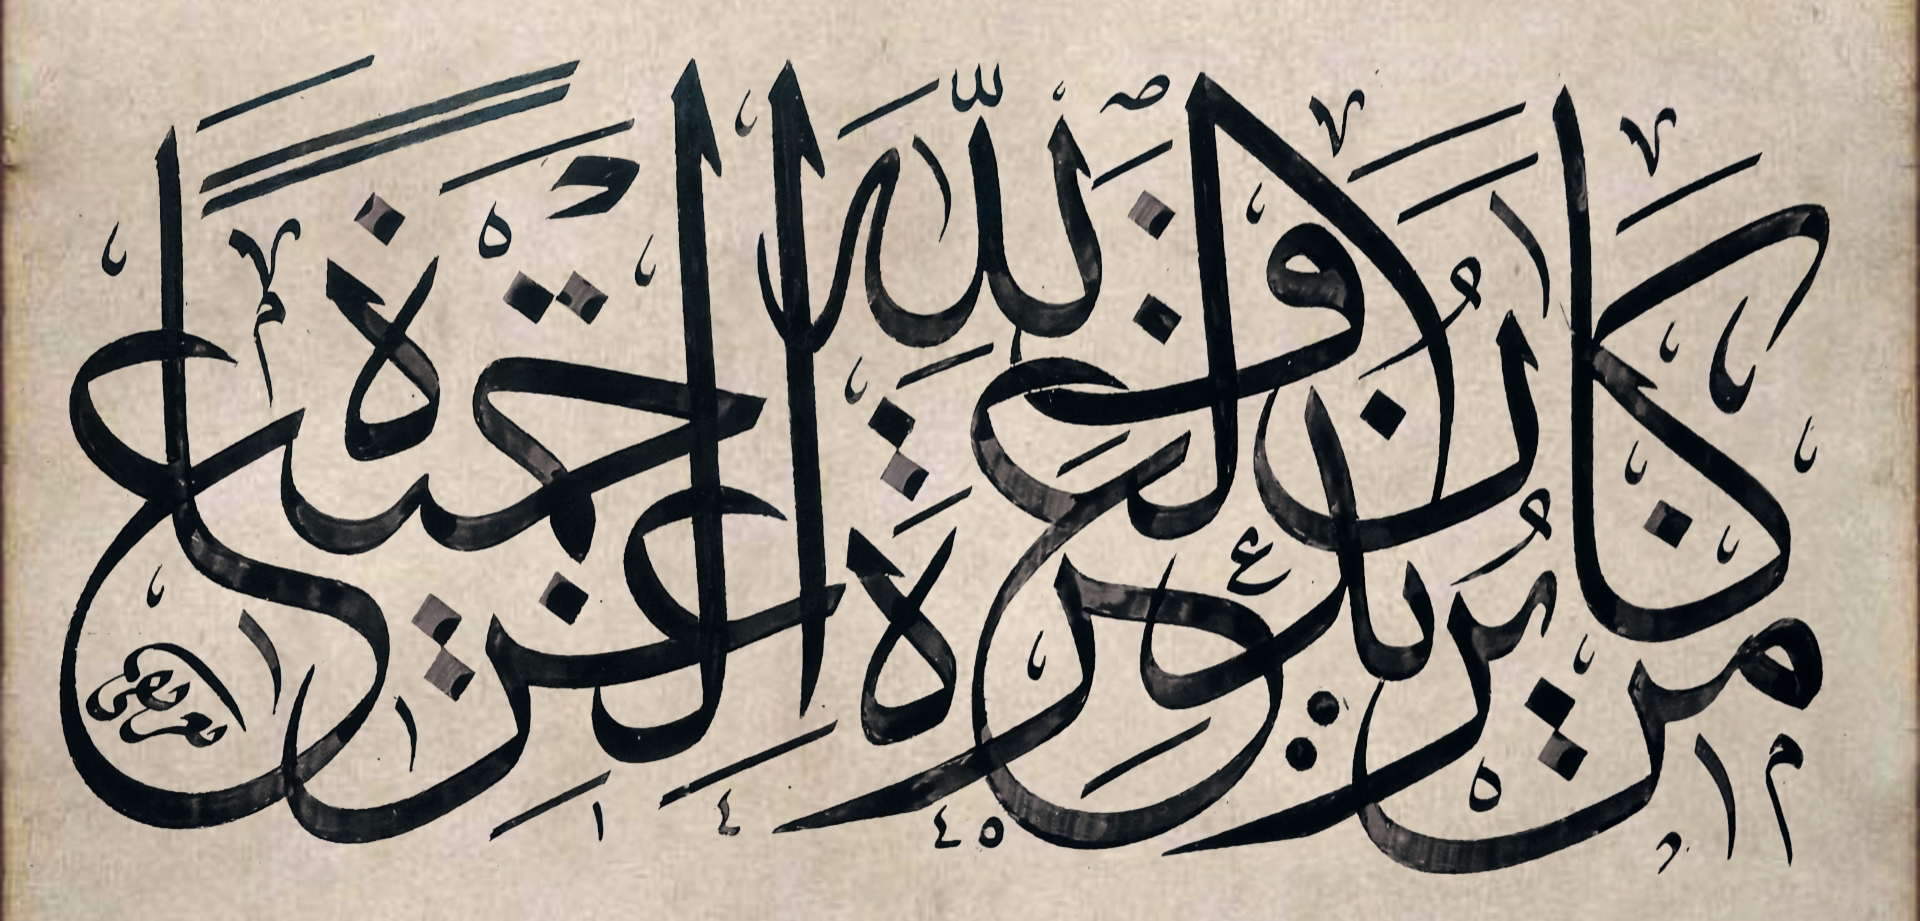 من كان يريد العزة فلله العزة جميعا
١٤٤٥